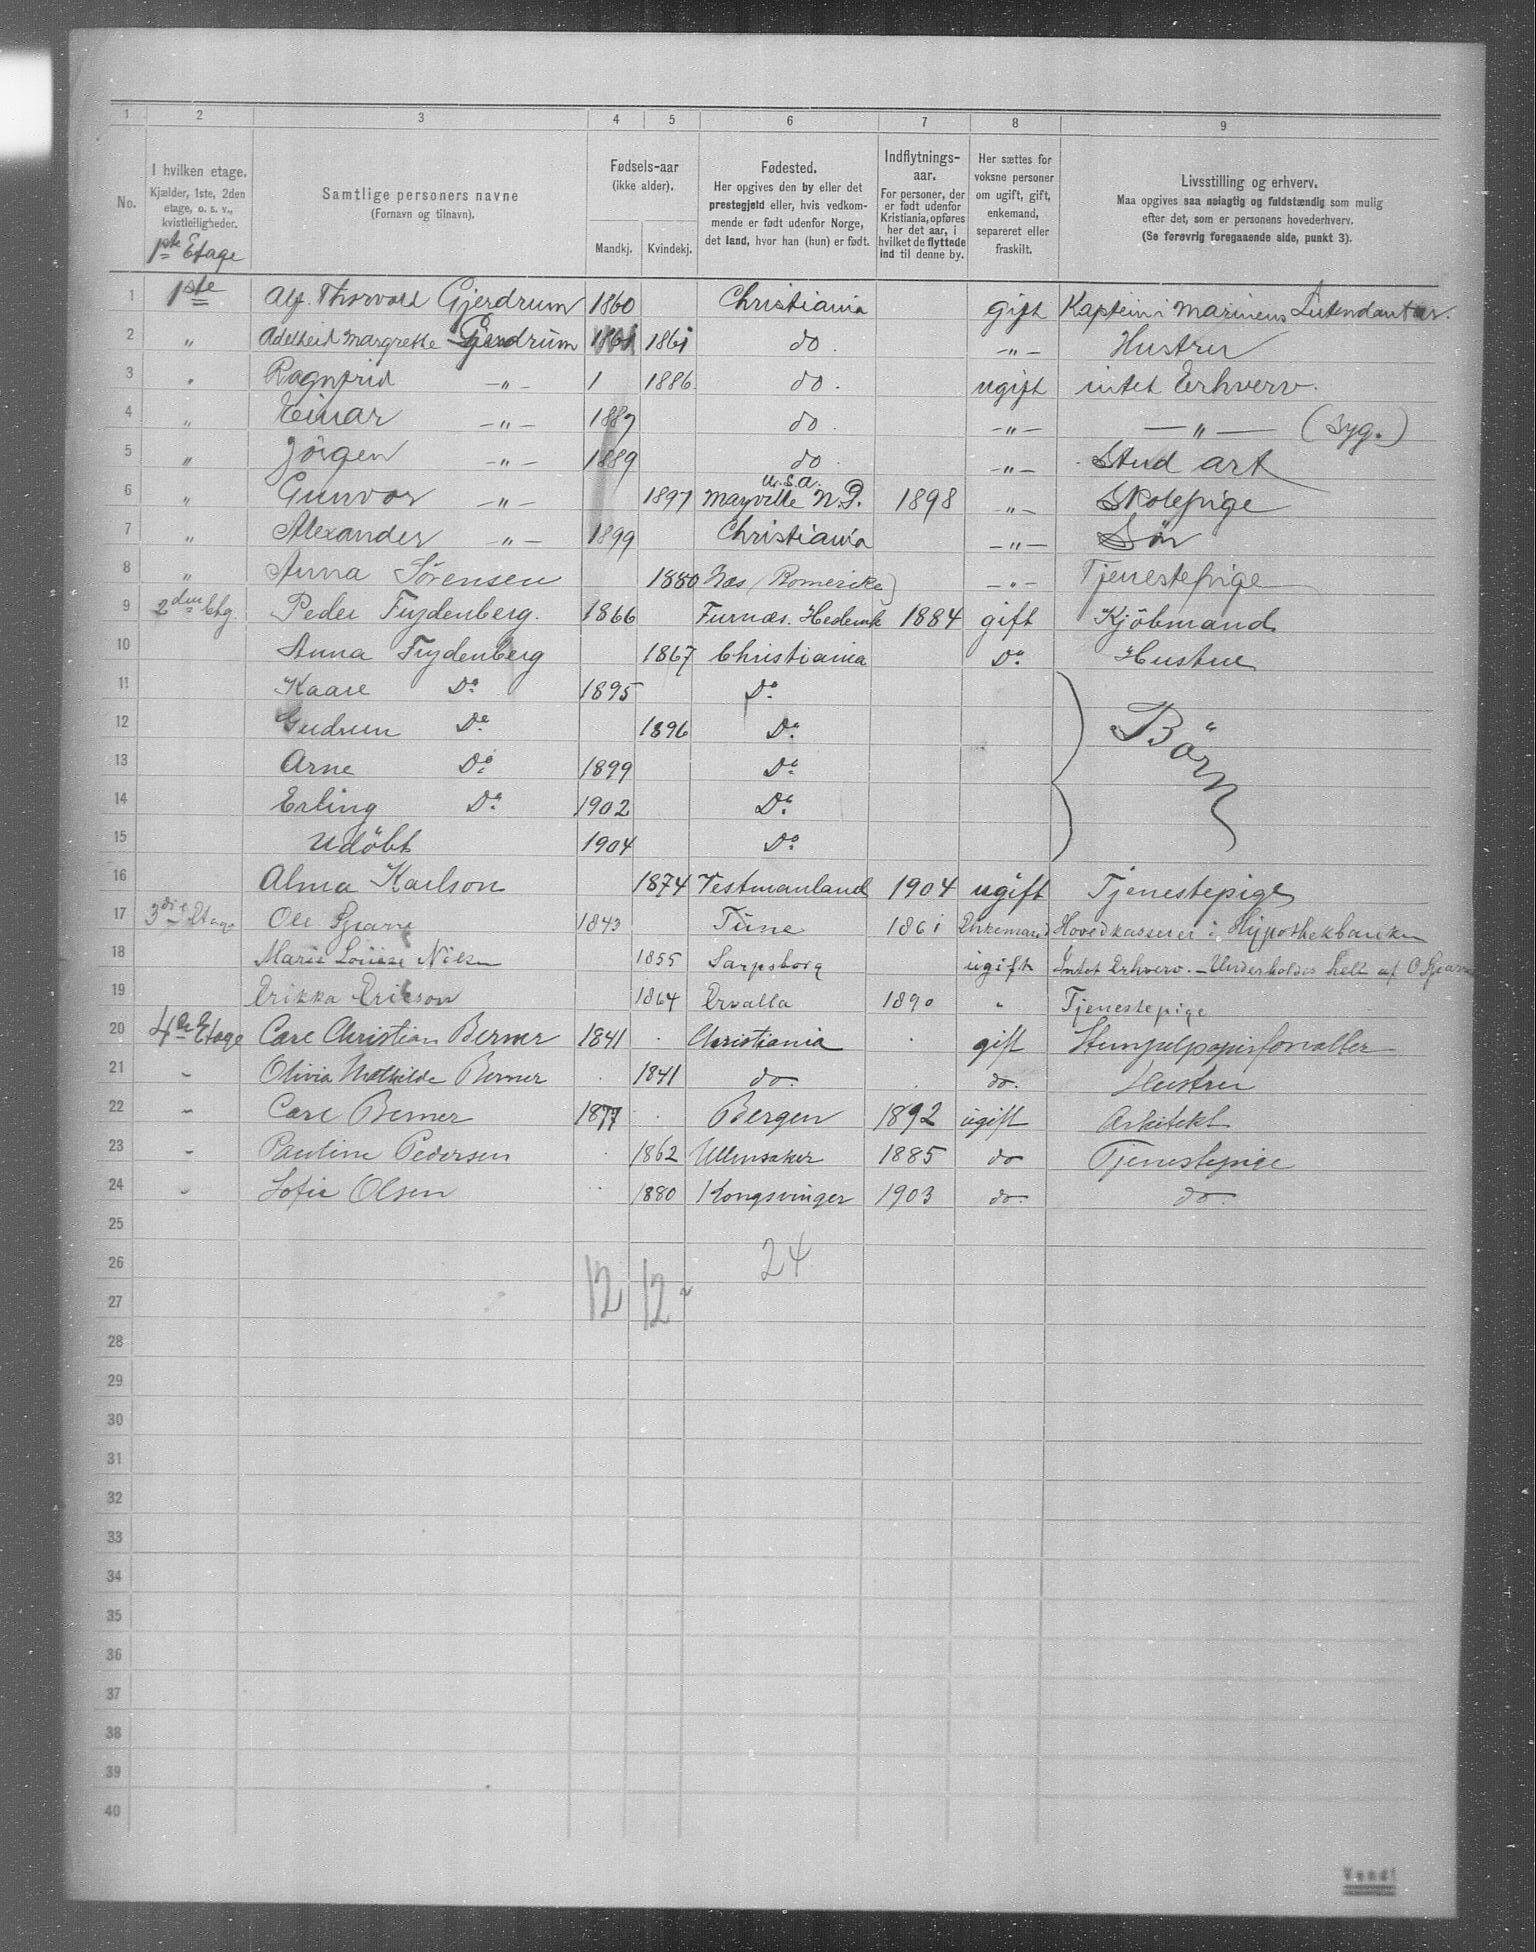 1 2 3 4 5 6 7 8 9
No. I hvilken etage. Kjælder, 1ste, 2den etage, o. s. v., kvistleiligheder. Samtlige personers navne (Fornavn og tilnavn). Fødsels-aar (ikke alder). Mandkj. Kvindekj. Fødested. Her opgives den by eller det prestegjeld eller, hvis vedkommende er født udenfor Norge, det land, hvor han (hun) er født. Indflytnings-aar. For personer, der er født udenfor Kristiania, opføres her det aar, i hvilket de flyttede ind til denne by. Her sættes for voksne personer om ugift, gift, enkemand, separeret eller fraskilt. Livsstilling og erhverv. Maa opgives saa nøiagtig og fuldstændig som mulig efter det, som er personens hovederhverv. (Se forøvrig foregaaende side, punkt 3).
1ste Etage
1 1ste Alf Thorvald Gjerdrum 1860 Christiania gift Kaptein i Marinens Intendantur.
2 " Adelheid Margrethe Gjerdrum 1861 1861 do. -"- Hustru
3 " Ragnfrid -"- 1 1886 do. ugift intet Erhverv.
4 " Einar -"- 1887 do. -"- -"- (Syg.)
5 " Jørgen -"- 1889 do. -"- Stud art
6 " Gunvor -"- 1897 Mayville N.D. U.S.A. 1898 -"- Skolepige
7 " Alexander -"- 1899 Christiania -"- Søn
8 " Anna Sörensen 1880 Næs (Romerike) -"- Tjenestepige
9 2den Etg. Peder Frydenberg. 1866 Furnæs. Hedemk 1884 gift Kjöbmand.
10 Anna Frydenberg 1867 Christiania Do. Hustrue
11 Kaare Do. 1895 Do.
12 Gudrun Do. 1896 Do. Börn
13 Arne Do. 1899 Do.
14 Erling Do. 1902 Do.
15 Udöbt 1904 Do.
16 Alma Karlson 1874 Vestmanland 1904 ugift Tjenestepige
17 3die Etage Ole Sparre 1843 Tune 1861 Enkemand Hovedkasserer i Hypothekbanken
18 Marie Louise Nilsen 1855 Sarpsborg ugift Intet Erhverv. - Underholdes helt af O Sparre
19 Erikka Erikson 1864 Ervalla 1890 " Tjenestepige
20 4de Etage Carl Christian Berner 1841 . Christiania . gift Stempelpapirforvalter
21 " Olivia Mathilde Berner . 1841 do. . do. Hustru
22 " Carl Berner 1877 . Bergen 1892 ugift Arkitekt
23 " Pauline Pedersen . 1862 Ullensaker 1885 do Tjenestepige
24 " Sofie Olsen .. 1880 Kongsvinger 1903 do. do.
25
26 24
27 12 12
28
29
30
31
32
33
34
35
36
37
38
39
40
Vend!